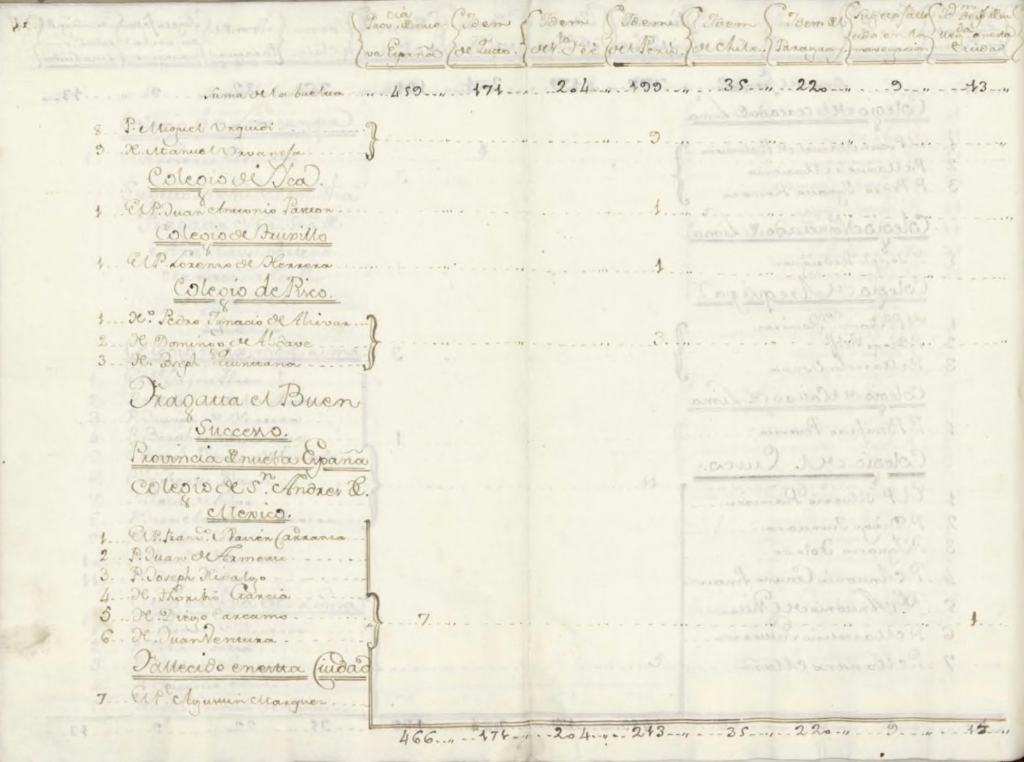 Prov.cia de nueva España Idem de Quito. Idem de Sta Feè Idem del Perù. Idem de Chile. Idem del Paraguay. en la navegacion en esta Ciudad
Suma de la buelta 459 171 204 199 35 22 9 13
8 P. Miguel Urquidi
9 H. Manuel 9
Colegio de Yca.
1 El P. Juan Antonio Pastor 1
Colegio de Truxillo
1 El P. Lorenzo de Herrera 1
Colegio de Pisco.
1 H.o Pedro Ignacio de
2 H. Domingo de 3
3 H. Joseph Quintana
Fragatta el Buen
Sucesso.
Provincia de nueba España
Colegio de Sn. Andres de
Mexico.
1 El P. Franco. Xavier Carranza
2 P. Juan de
3 P. Joseph Hidalgo
4 H. Thoribio Garcia
5 H. Diego Carcamo 7 1
6 H. Juan Ventura
Fallecido en esta Ciudad
7 El Pe. Agustin Marquez
466 171 204 213 35 22 9